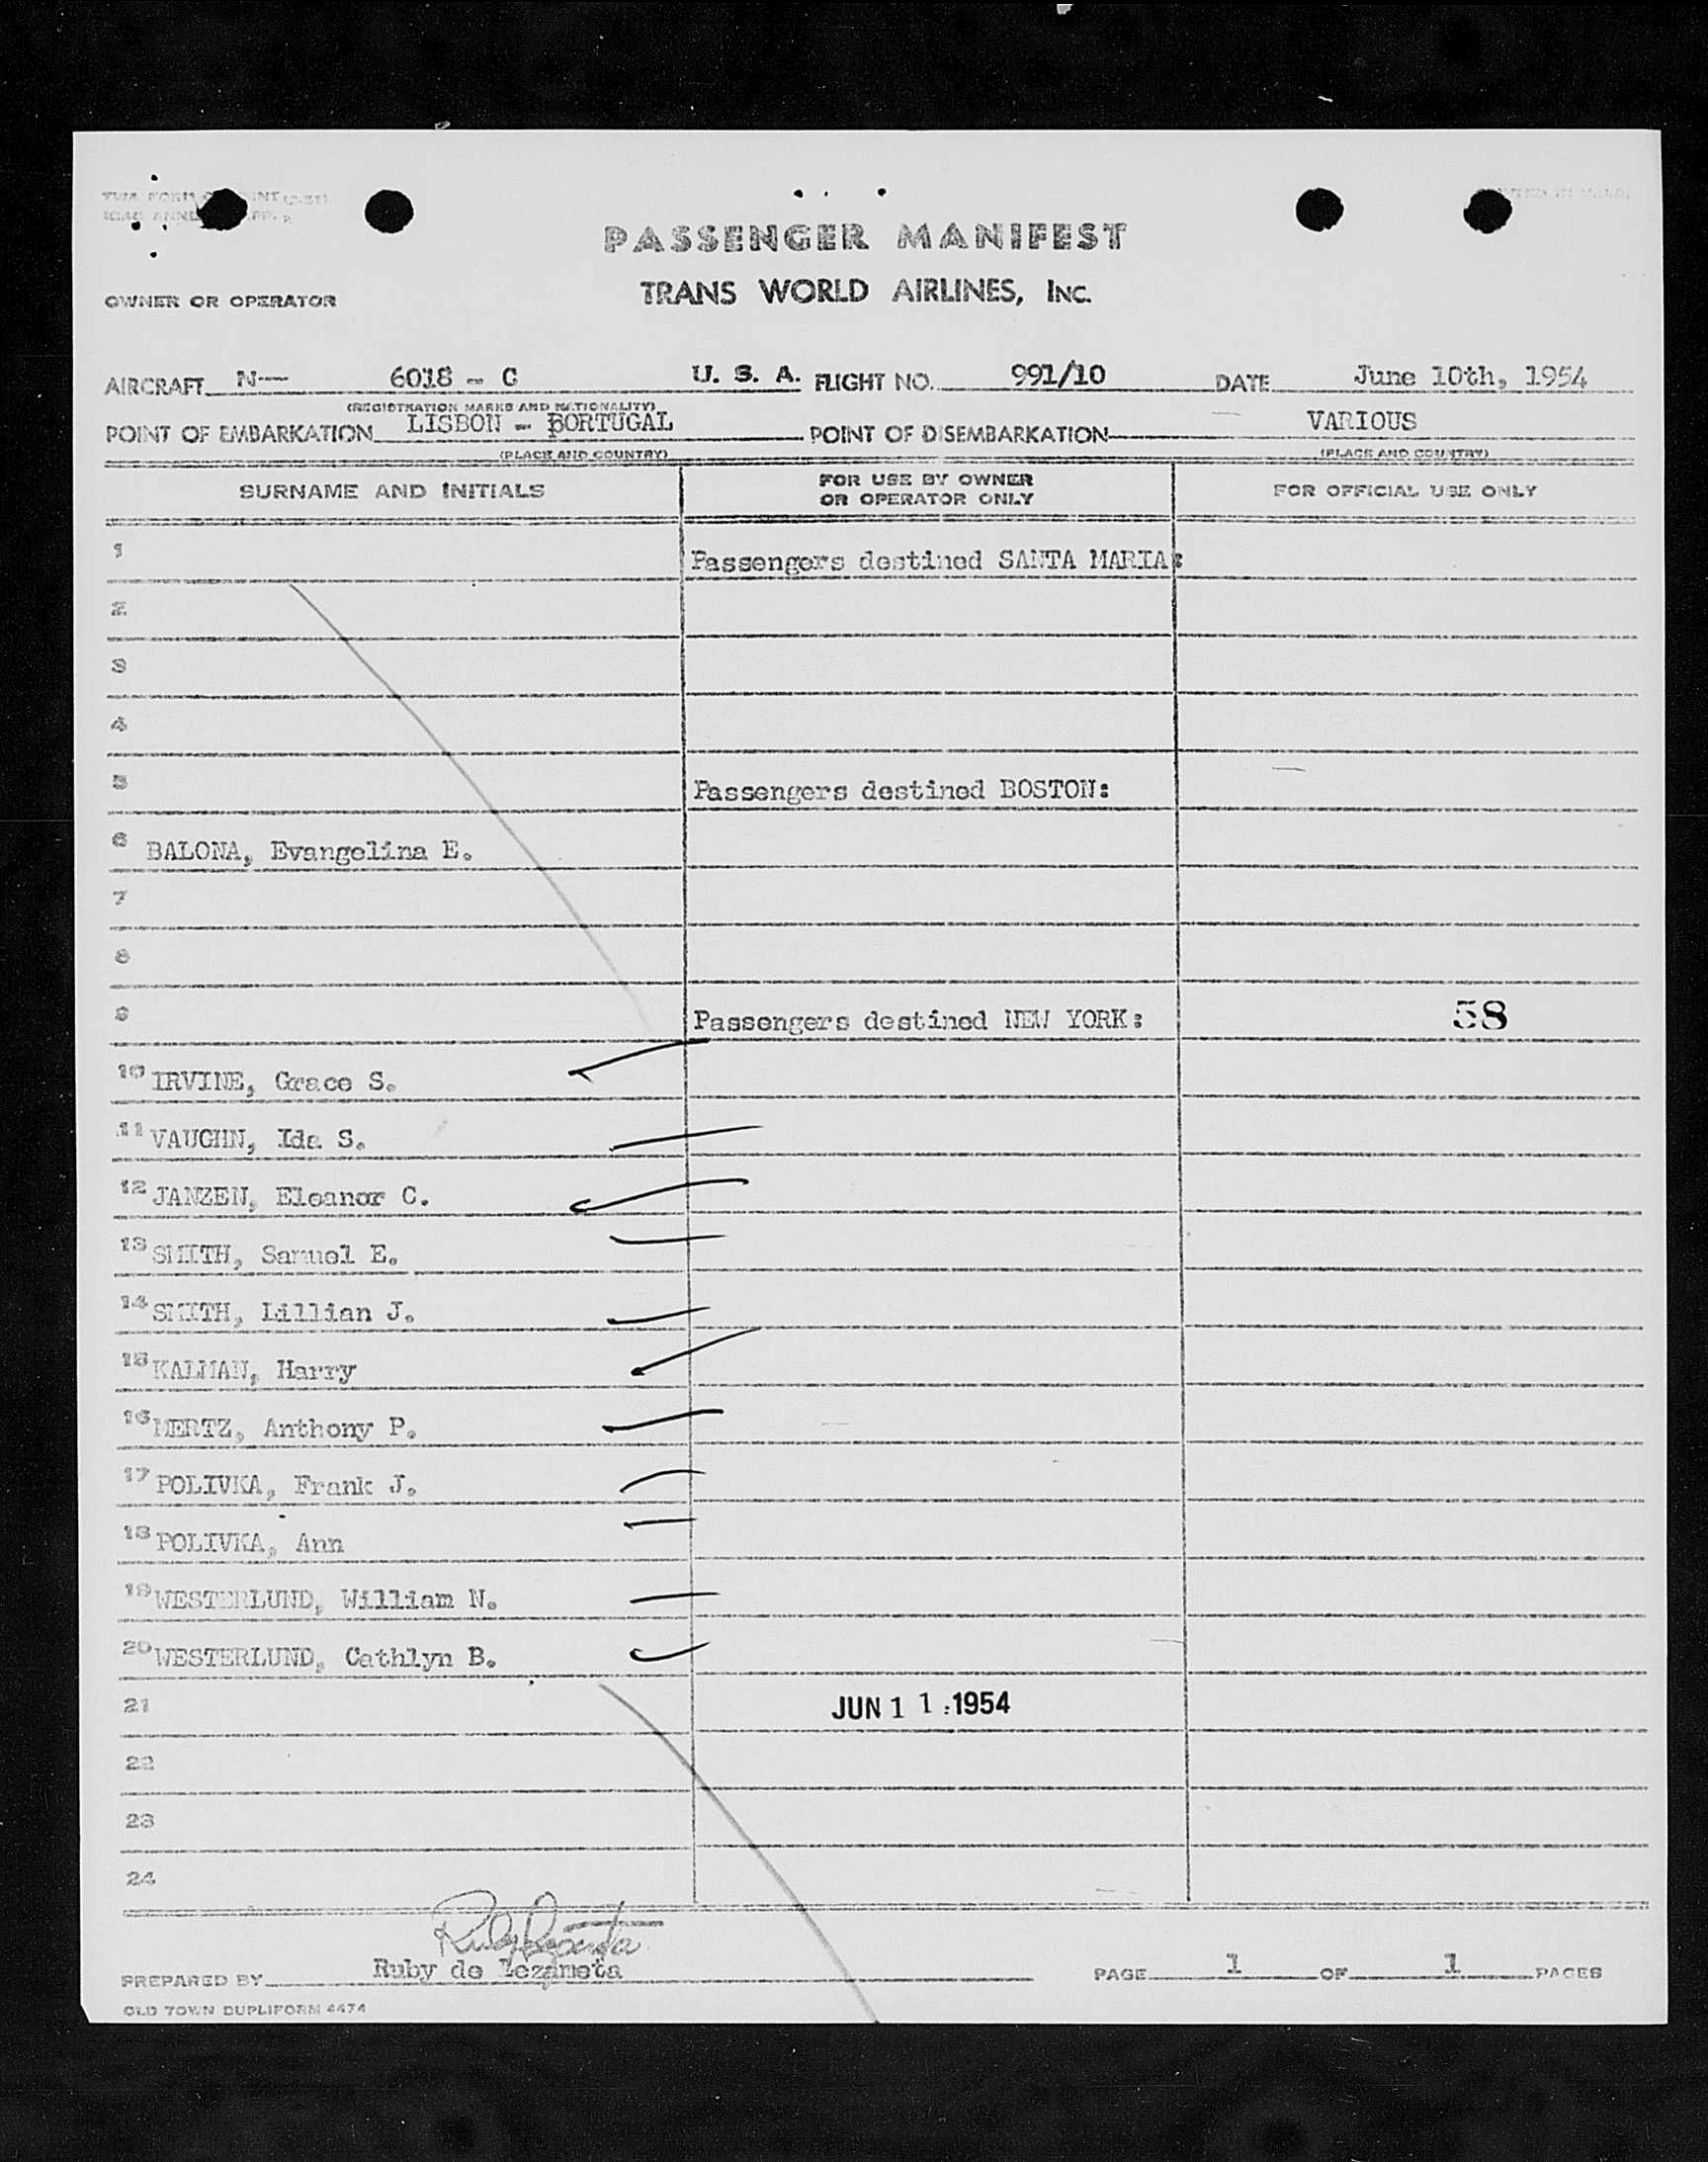 PASSENGER MANIFEST
OWNER OR OPERATOR
TRANS WORLD AIRLINES, INC.
AIRCRAFT N— 6018 - C U. S. A. FLIGHT NO. 991/10 DATE June 10th, 1954
(REGISTRATION MARKS AND NATIONALITY)
POINT OF EMBARKATION LISBON - PORTUGAL POINT OF DISEMBARKATION VARIOUS
(PLACE AND COUNTRY) (PLACE AND COUNTRY)
SURNAME AND INITIALS FOR USE BY OWNER OR OPERATOR ONLY FOR OFFICIAL USE ONLY
1 Passengers destined SANTA MARIA:
2
3
4
5 Passengers destined BOSTON:
6 BALONA, Evangelina E.
7
8
9 Passengers destined NEW YORK: 58
10 IRVINE, Grace S.
11 VAUGHN, Ida S.
12 JANZEN, Eleanor C.
13 SMITH, Samuel E.
14 SMITH, Lillian J.
15 KALMAN, Harry
16 MERTZ, Anthony P.
17 POLIVKA, Frank J.
18 POLIVKA, Ann
19 WESTERLUND, William N.
20 WESTERLUND, Cathlyn B.
21 JUN 11 1954
22
23
24
PREPARED BY Ruby de Lezameta PAGE 1 OF 1 PAGES
OLD TOWN DUPLIFORM 4474